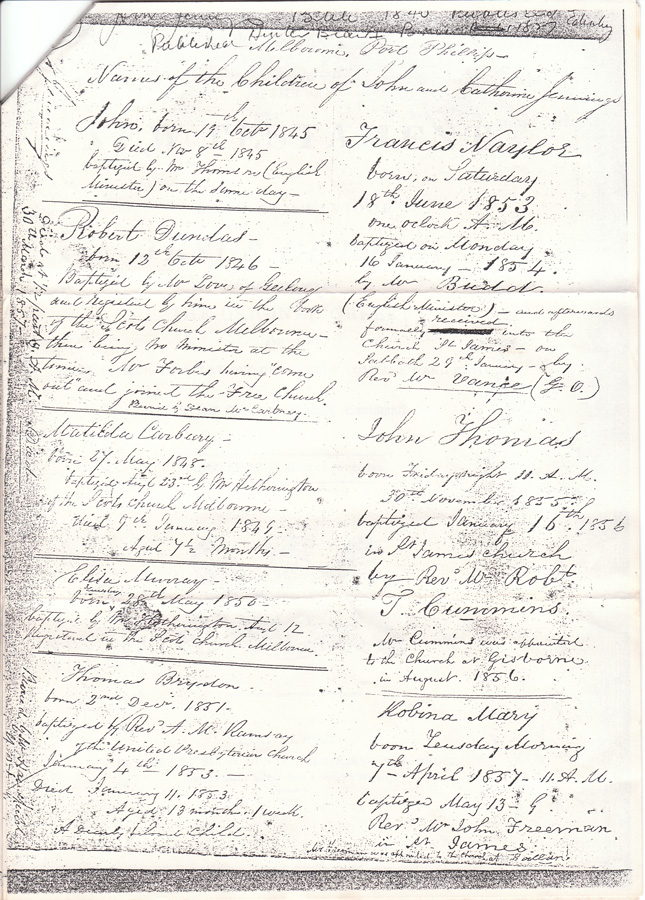 Published
Melbourne, Port Phillip
Names of the Children of John and Catherine Jennings
John, born 19th Octr 1845
Died Nov 8th 1845
baptized by Mr Thomson (English
Minister) on the same day
Robert Dundas
born 12th Octr 1846
Baptized by Mr Love of Geelong
and Registed by him in the Book
of the Scots Church Melbourne
there being no Minister at the
time. Mr Forbes having "come
out" and joined the Free Church.
Buried by Dean McCartney.
Matilda Carbary
born 27 May 1848.
baptized 23rd by Mr Hetherington
of the Scots Church Melbourne
died 9th January 1849
Aged 7½ Months
Eliza Murray
Tuesday
born 28th May 1850
baptized by Mr Hetherington 12
Registered in the Scots Church Melbourne
Thomas Brydon
born 2nd Decr 1851.
baptized by Revd A. M. Ramsay
of the United Presbyterian Church
January 4th 1853.
Died January 11. 1853
Aged 13 months 1 week.
Child
Francis Naylor
born, on Saturday
18th June 1853
one oclock A. M.
baptized on Monday
16 January 1854.
by Mr Budd.
(English Minister) and afterwards
formally received into the
Church St James on
Sabbath 29th January by
Revd Mr Vance
John Thomas
born Friday night 11. A. M.
30th November 1855
baptized January 16th 1856
in St James church
by Revd Mr Robt
T. Cummins.
Mr Cummins was appointed
to the Church at Gisborne
in August 1856.
Robina Mary
born Tuesday Morning
7th April 1857 11. A. M.
baptized May 13
Revd Mr John Freeman
in St James
Mr Freeman was appointed to the church at
30th March 1857